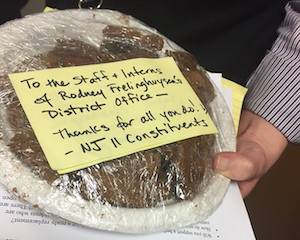 To the Staff + Interns
of Rodney Frelinghuysen's
District Office —
Thanks for all you do!!
- NJ 11 Constituents